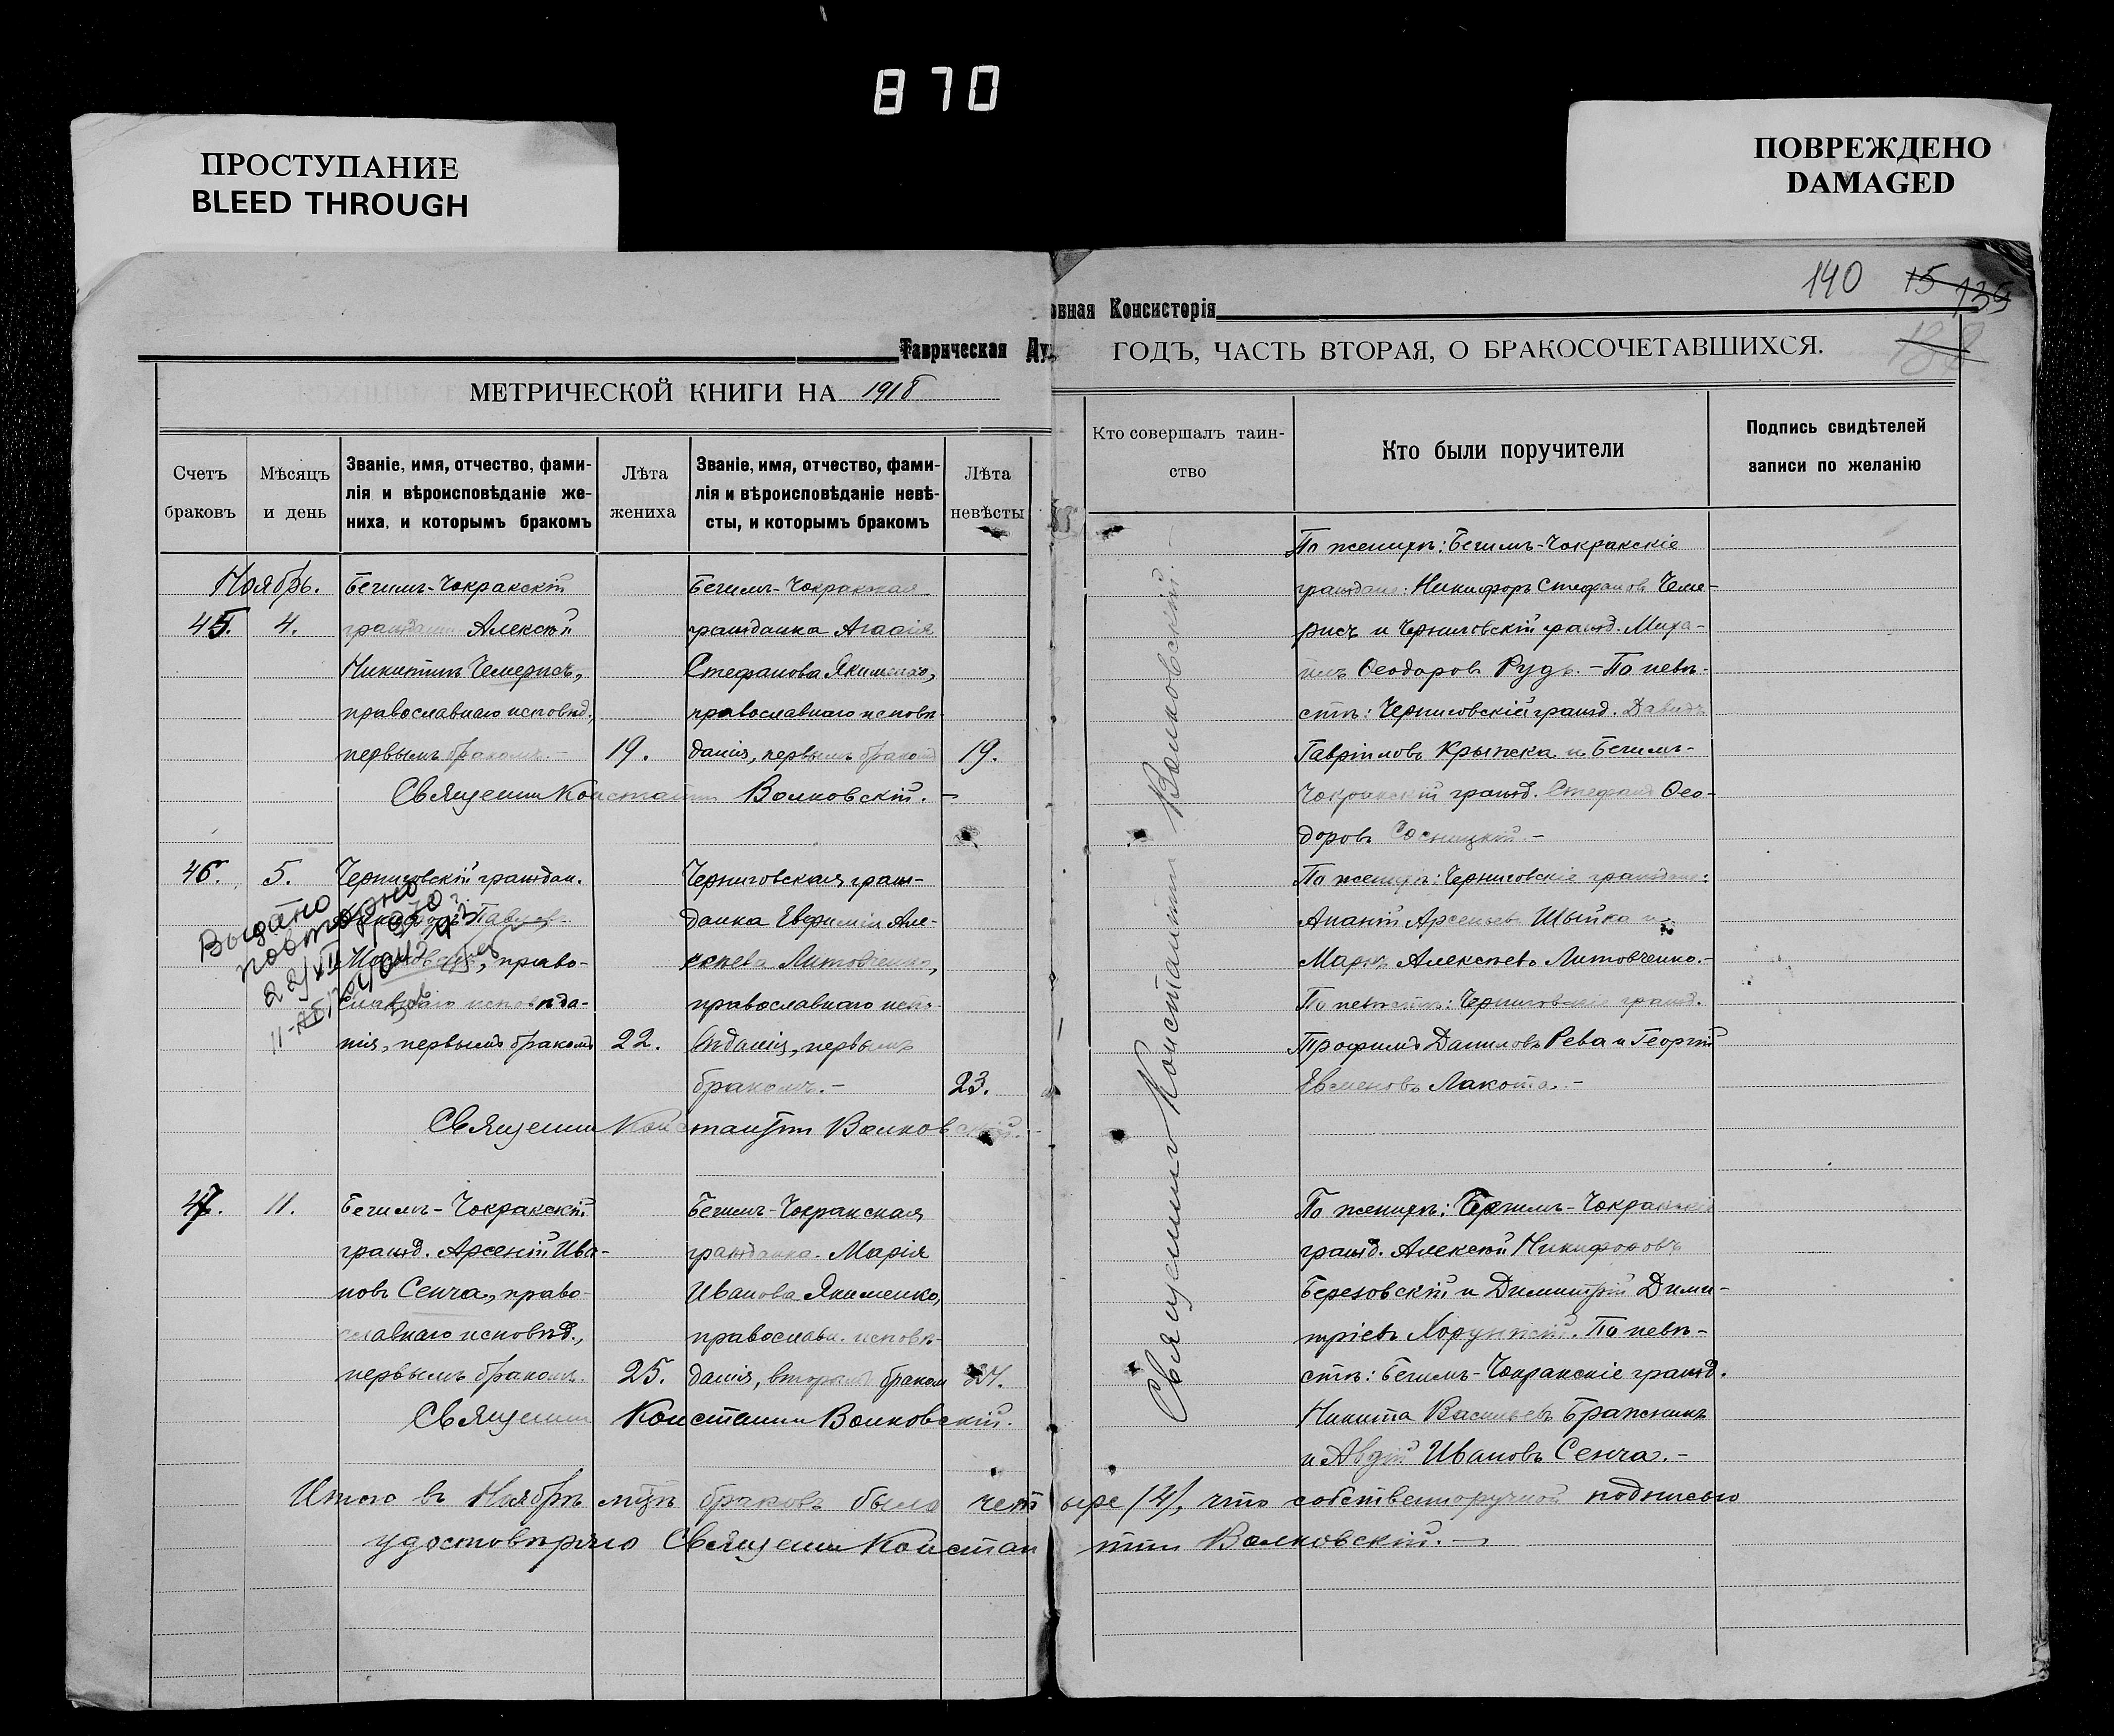 870
ПРОСТУПАНИЕ
BLEED THROUGH
ПОВРЕЖДЕНО
DAMAGED
140 15 139
138
Таврическая Ду
овная Консисторія
МЕТРИЧЕСКОЙ КНИГИ НА 1918
ГОДЪ, ЧАСТЬ ВТОРАЯ, О БРАКОСОЧЕТАВШИХСЯ.
Счетъ
браковъ
Мѣсяцъ
и день
Званіе, имя, отчество, фами-
лія и вѣроисповѣданіе же-
ниха, и которымъ бракомъ
Лѣта
жениха
Званіе, имя, отчество, фами-
лія и вѣроисповѣданіе невѣ-
сты, и которымъ бракомъ
Лѣта
невѣсты
Кто совершалъ таин-
ство
Кто были поручители
Подпись свидѣтелей
записи по желанію
Ноябрь.
45. 4.
Бегимъ-Чокракскій
гражданинъ Алексѣй
Никитинъ Чемерисъ,
православнаго исповѣд.
первымъ бракомъ.-
19.
Бегимъ-Чокракская
гражданка Агафія
Стефанова Якименко,
православнаго исповѣ-
данія, первымъ бракомъ
19.
Священникъ Константинъ Волковскій. -
По женихѣ: Бегимъ-Чокракскіе
граждане: Никифоръ Стефановъ Чеме-
рисъ и Черниговскій гражд. Миха-
илъ Ѳеодоровъ Рудь. - По невѣ-
стѣ: Черниговскій гражд. Давидъ
Гавріиловъ Крыжка и Бегимъ-
Чокракскій гражд. Стефанъ Ѳео-
доровъ Сосницкій. -
46. 5.
Черниговскій граждан.
право-
славнаго исповѣда-
нія, первымъ бракомъ
22.
Выдано
повторно
22/VII
Черниговская граж-
данка Евфимія Але-
ксѣева Литовченко,
православнаго испо-
вѣданія, первымъ
бракомъ. -
23.
Священникъ Константинъ Волковскій. -
По женихѣ: Черниговскіе граждане:
Ананій Арсеньевъ Шыйка и
Маркъ Алексѣевъ Литовченко. -
По невѣстѣ: Черниговскіе гражд.
Трофимъ Даниловъ Рева и Георгій
Евменовъ Лакота. -
47. 11.
Бегимъ-Чокракскій
гражд. Арсеній Ива-
новъ Сенча, право-
славнаго исповѣд.,
первымъ бракомъ.
25.
Бегимъ-Чокракская
гражданка Марія
Иванова Якименко,
православн. исповѣ-
данія, вторымъ бракомъ
Священникъ Константинъ Волковскій.
По женихѣ: Бегимъ-Чокракскіе
гражд. Алексѣй Никифоровъ
Березовскій и Димитрій Дими-
тріевъ Хорунжій. По невѣ-
стѣ: Бегимъ-Чокракскіе гражд.
Никита Васильевъ Бражникъ
и Авдій Ивановъ Сенча. -
Священникъ Константинъ Волковскій. -
Итого въ Ноябрѣ мѣцѣ браковъ было четыре (4), что собственноручной подписью
удостовѣряю Священникъ Константинъ Волковскій. -